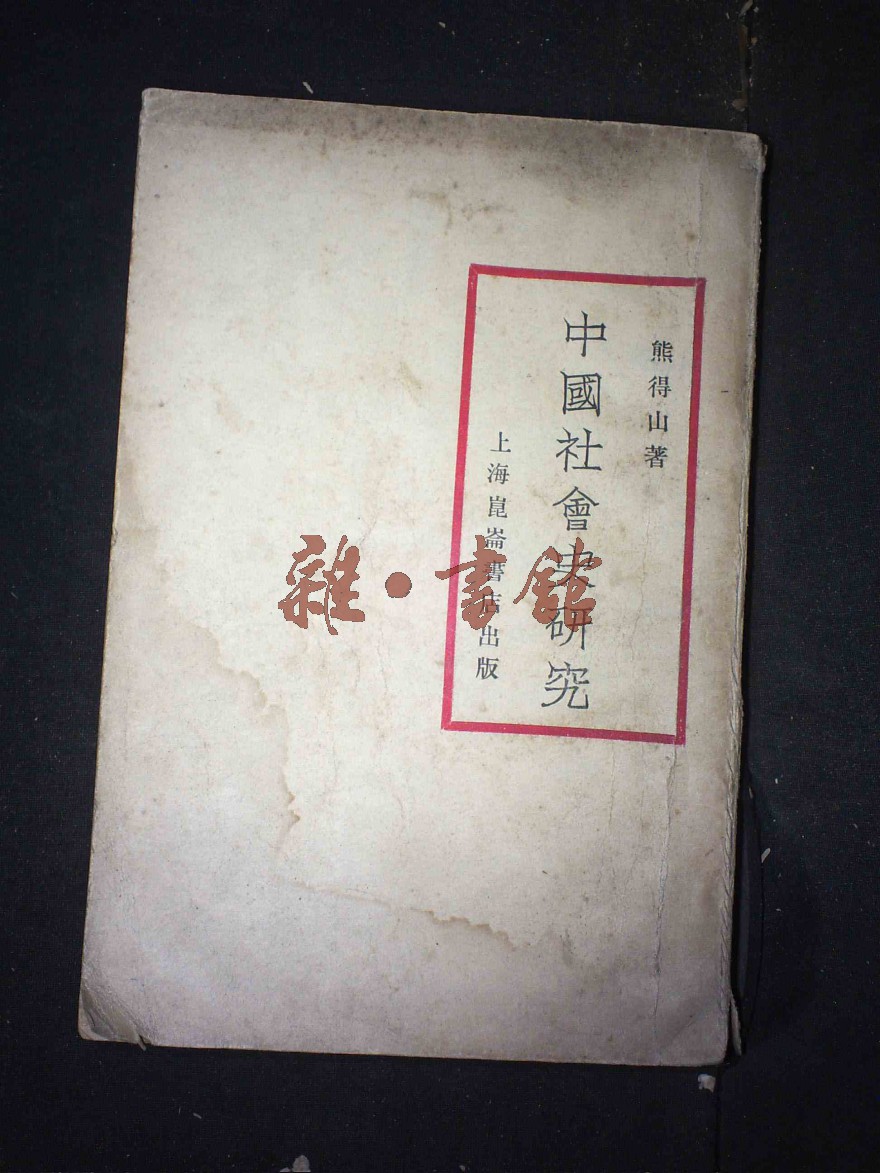 熊得山著
中國社會史研究
上海崑崙書店出版
雜·書館